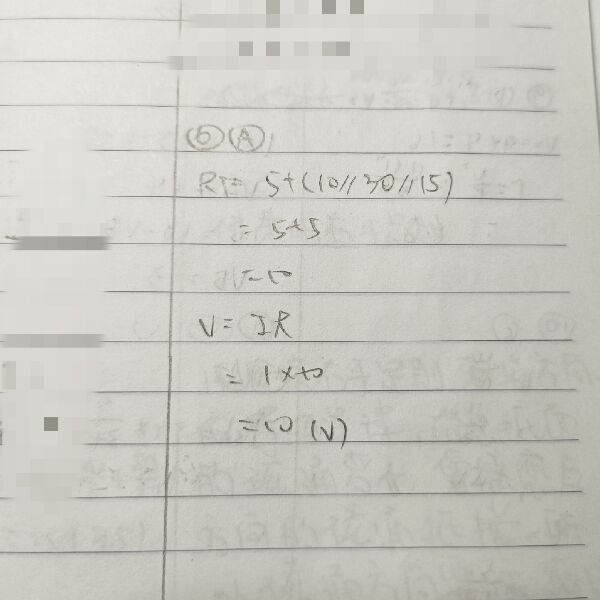 ⑥ Ⓐ
RT= 5+(10//30//15)
= 5+5
= 10
V = IR
= 1×10
= 10 (V)